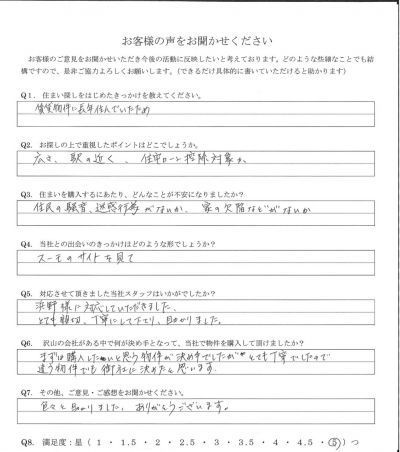 お客様の声をお聞かせください
お客様のご意見をお聞かせいただき今後の活動に反映したいと考えております。どのような些細なことでも結
構ですので、是非ご協力よろしくお願いします。（できるだけ具体的に書いていただけると助かります）
Q1. 住まい探しをはじめたきっかけを教えてください。
賃貸物件に長年住んでいたため
Q2. お探しの上で重視したポイントはどこでしょうか。
広さ、駅の近く、住宅ローン控除対象か、
Q3. 住まいを購入するにあたり、どんなことが不安になりましたか？
住民の騒音、迷惑行為がないか、家の欠陥などがないか
Q4. 当社との出会いのきっかけはどのような形でしょうか？
スーモのサイトを見て
Q5. 対応させて頂きました当社スタッフはいかがでしたか？
浜野様に対応していただきました。
とても親切、丁寧にして下さり、助かりました。
Q6. 沢山の会社がある中で何が決め手となって、当社で物件を購入して頂けましたか？
まずは購入したいと思う物件が決め手でしたがとても丁寧でしたので
違う物件でも御社に決めたと思います。
Q7. その他、ご意見・ご感想をお聞かせください。
色々と助かりました。ありがとうございます。
Q8. 満足度：星（ 1 ・ 1.5 ・ 2 ・ 2.5 ・ 3 ・ 3.5 ・ 4 ・ 4.5 ・ 5 ）つ